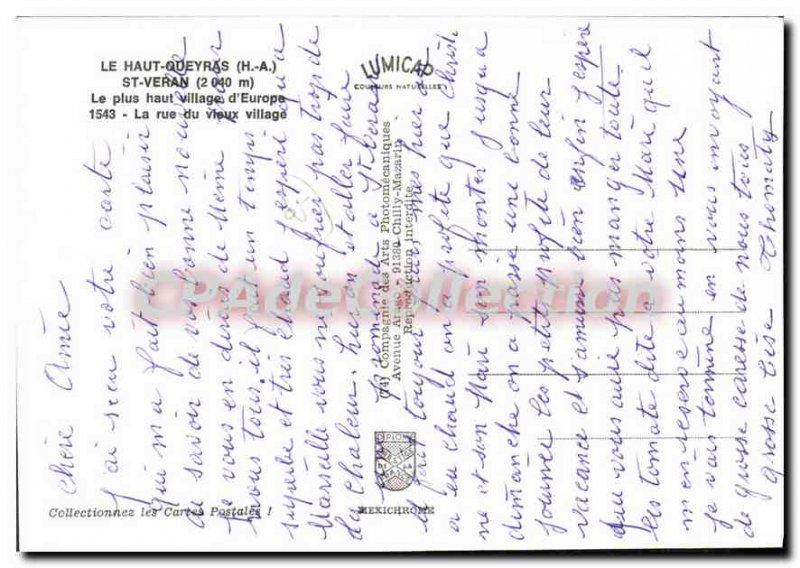 LE HAUT-QUEYRAS (H.-A.)
ST-VERAN (2 040 m)
Le plus haut village d'Europe
1543 - La rue du vieux village
LUMICAP
COULEURS NATURELLES
(74) Compagnie des Arts Photomécaniques
Avenue Arago - 91380 Chilly-Mazarin
Reproduction interdite
DIPLOME
MEXICHROME
Collectionnez les Cartes Postales !
CPAdeCollection
Chère Amie
J'ai reçu votre carte
qui m'a fait bien plaisir
de savoir de vos bonne nouvelle
Je vous en dirai de même pour
nous tous il fait un temps
superbe et très chaud j'espère qu'a
Marseille vous ne soufrier pas trop de
la chaleur, hier et aller faire
une promenade a St Veran
il fait toujour frais mes hier
a eu chaud on a profité que Christi
ne et son Mari son monter jusqu'a
dimanche on a passé une bonne
journée les petit profite de leur
vacance et s'amuse bien enfin j'espère
que vous auré pas manger toute
les tomate dite a votre Mari qu'il
m'en reserve au moins une
je vais terminé en vous envoyant
de grosse caresse de nous tous
grosse bise Thomaty